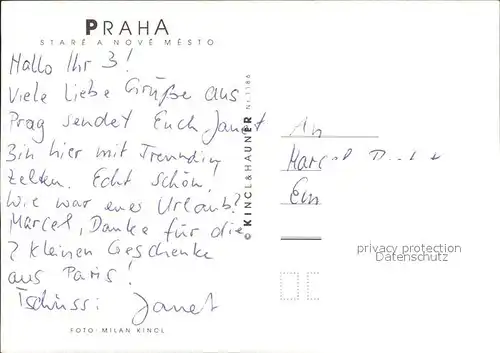 PRAHA
STARÉ A NOVÉ MĚSTO
Hallo Ihr 3!
Viele Liebe Grüße aus
Prag sendet Euch Janet
Bin hier mit Freundin
zelten. Echt schön!
Wie war euer Urlaub?
Marcel, Danke für die
2 kleinen Geschenke
aus Paris!
Tschüss: Janet
FOTO · MILAN KINCL
© KINCL & HAUNER Nr. 1186
An
Marcel
privacy protection
Datenschutz